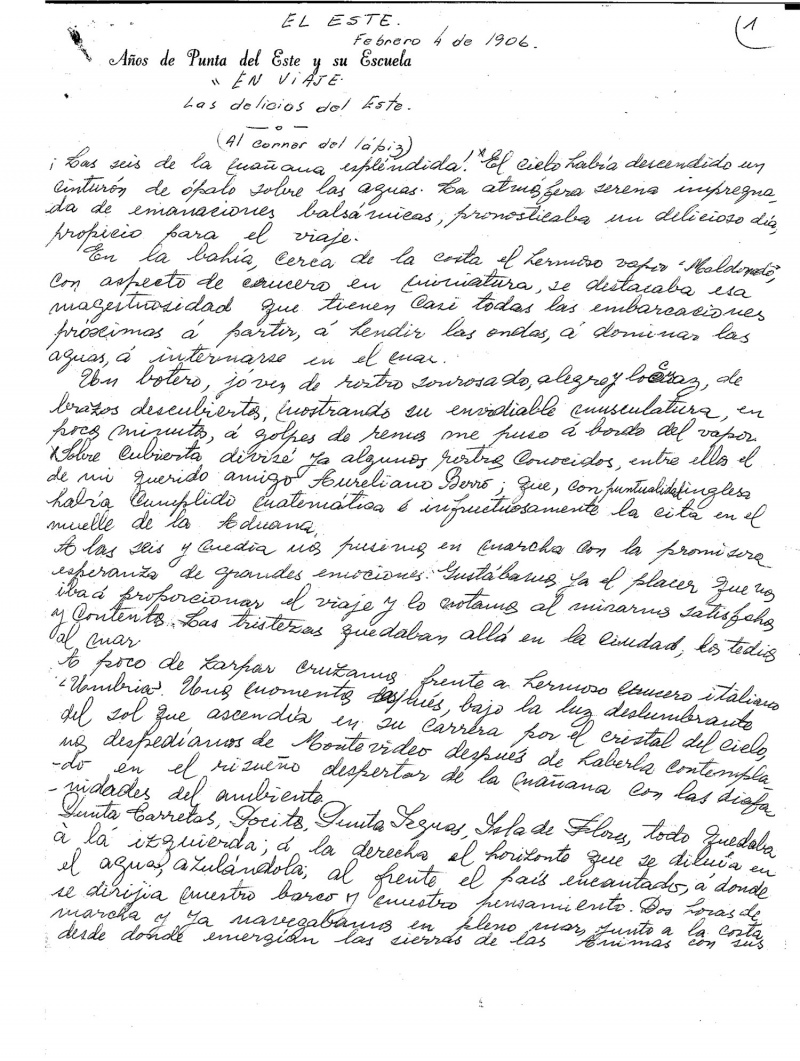 EL ESTE.
1
Febrero 4 de 1906.
Años de Punta del Este y su Escuela
"EN VIAJE.
Las delicios del Este.
(Al correr del lápiz)
¡Las seis de la mañana espléndida! El cielo había descendido un
cinturón de ópalo sobre las aguas. La atmosfera serena impregna-
da de emanaciones balsámicas, pronosticaba un delicioso día,
propicio para el viaje.
En la bahía, cerca de la costa el hermoso vapor "Maldonado",
con aspecto de crucero en miniatura, se destacaba esa
magestuosidad que tienen casi todas las embarcaciones
próximas á partir, á hendir las ondas, á dominar las
aguas, á internarse en el mar.
Un botero, jóven de rostro sonrosado, alegre y locuaz, de
brazos descubiertos, mostrando su envidiable musculatura, en
pocos minutos, á golpes de remos me puso á bordo del vapor.
Sobre cubierta divisé ya algunos rostros conocidos, entre ellos el
de mi querido amigo Aureliano Berro; que, con puntualidad inglesa
había cumplido matemática é infructuosamente la cita en el
muelle de la Aduana.
A las seis y media nos pusimos en marcha con la promisora
esperanza de grandes emociones. Gustábamos ya el placer que nos
iba á proporcionar el viaje y lo notamos al mirarnos satisfechos
y contentos. Las tristezas quedaban allá en la ciudad, los tedios
al mar
A poco de zarpar cruzamos frente a hermoso crucero italiano
"Umbria". Unos momentos después, bajo la luz deslumbrante
del sol que ascendía en su carrera por el cristal del cielo
nos despedíamos de Montevideo después de haberla contempla-
-do en el risueño despertar de la mañana con las diafa-
-nidades del ambiente
Punta Carretas, Pocitos, Punta Yeguas, Isla de Flores, todo quedaba
à la izquierda; á la derecha el horizonte que se diluía en
el agua, azulándola; al frente el país encantado, á donde
se dirijia nuestro barco y nuestro pensamiento. Dos horas de
marcha y ya navegabamos en pleno mar, junto a la costa
desde donde emergían las sierras de las Animas con sus